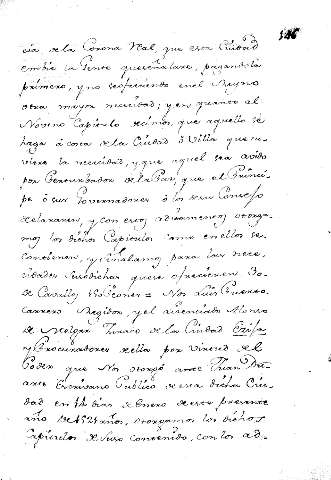 146
cia de la Corona Real, que esta Ciudad
embie la Gente que señalare, pagandola
primero, y no ofreciendose en el Reyno
otra mayor necesidad; y en quanto al
Noveno Capitulo decimos, que aquello se
haga á costa de la Ciudad ó Villa que tu-
viere la necesidad, y que aquel sea avido
por Perturbador de la Paz, que el Princi-
pe ó sus Governadores ó los de su Consejo
declararen, y con estos aditamentos otorga-
mos los dichos Capitulos como en ellos se
contienen, y señalamos para las nece-
sidades susodichas que se ofrecieren
de Cavallos, Peones = Nos Luis Guerre
Carrero Regidor, y el Licenciado Alonso
de Melgar Jurado de la Ciudad
y Procuradores de ella por virtud de el
Poder que Nos otorgó ante Juan
Escrivano Publico de esta dicha Ciu-
dad en dias de Enero de este presente
año de 1521 años, otorgamos los dichos
Capitulos de suso contenido, con los ad-